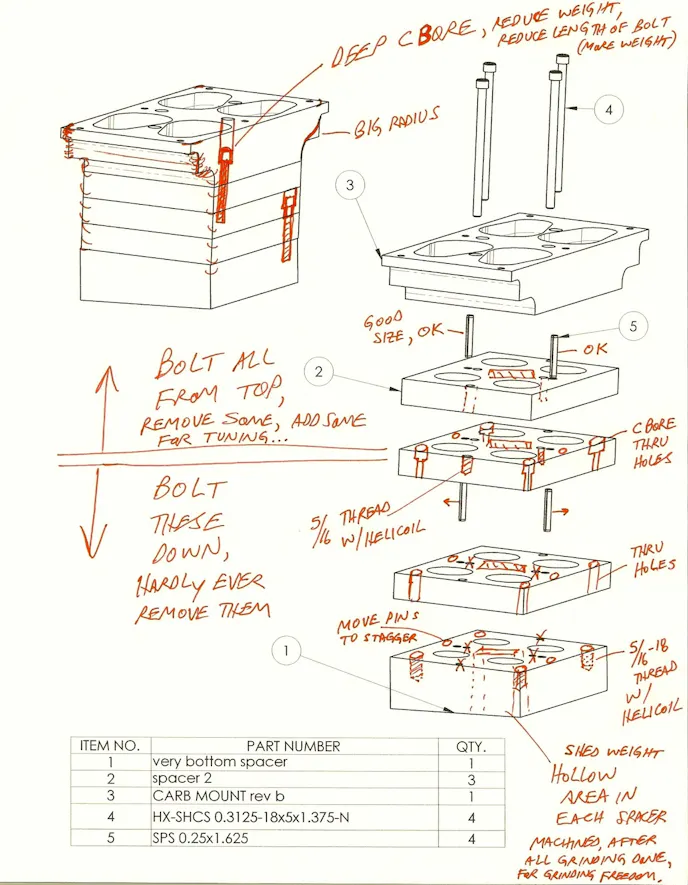 DEEP CBORE, REDUCE WEIGHT,
REDUCE LENGTH OF BOLT
(MORE WEIGHT)
BIG RADIUS
4
3
GOOD
SIZE, OK
5
OK
2
BOLT ALL
FROM TOP,
REMOVE SOME, ADD SOME
FOR TUNING...
CBORE
THRU
HOLES
BOLT
THESE
DOWN,
HARDLY EVER
REMOVE THEM
5/16 THREAD
W/HELICOIL
THRU
HOLES
MOVE PINS
TO STAGGER
1
5/16-18
THREAD
W/
HELICOIL
SHED WEIGHT
HOLLOW
AREA IN
EACH SPACER
MACHINED, AFTER
ALL GRINDING DONE,
FOR GRINDING FREEDOM.
ITEM NO. PART NUMBER QTY.
1 very bottom spacer 1
2 spacer 2 3
3 CARB MOUNT rev b 1
4 HX-SHCS 0.3125-18x5x1.375-N 4
5 SPS 0.25x1.625 4